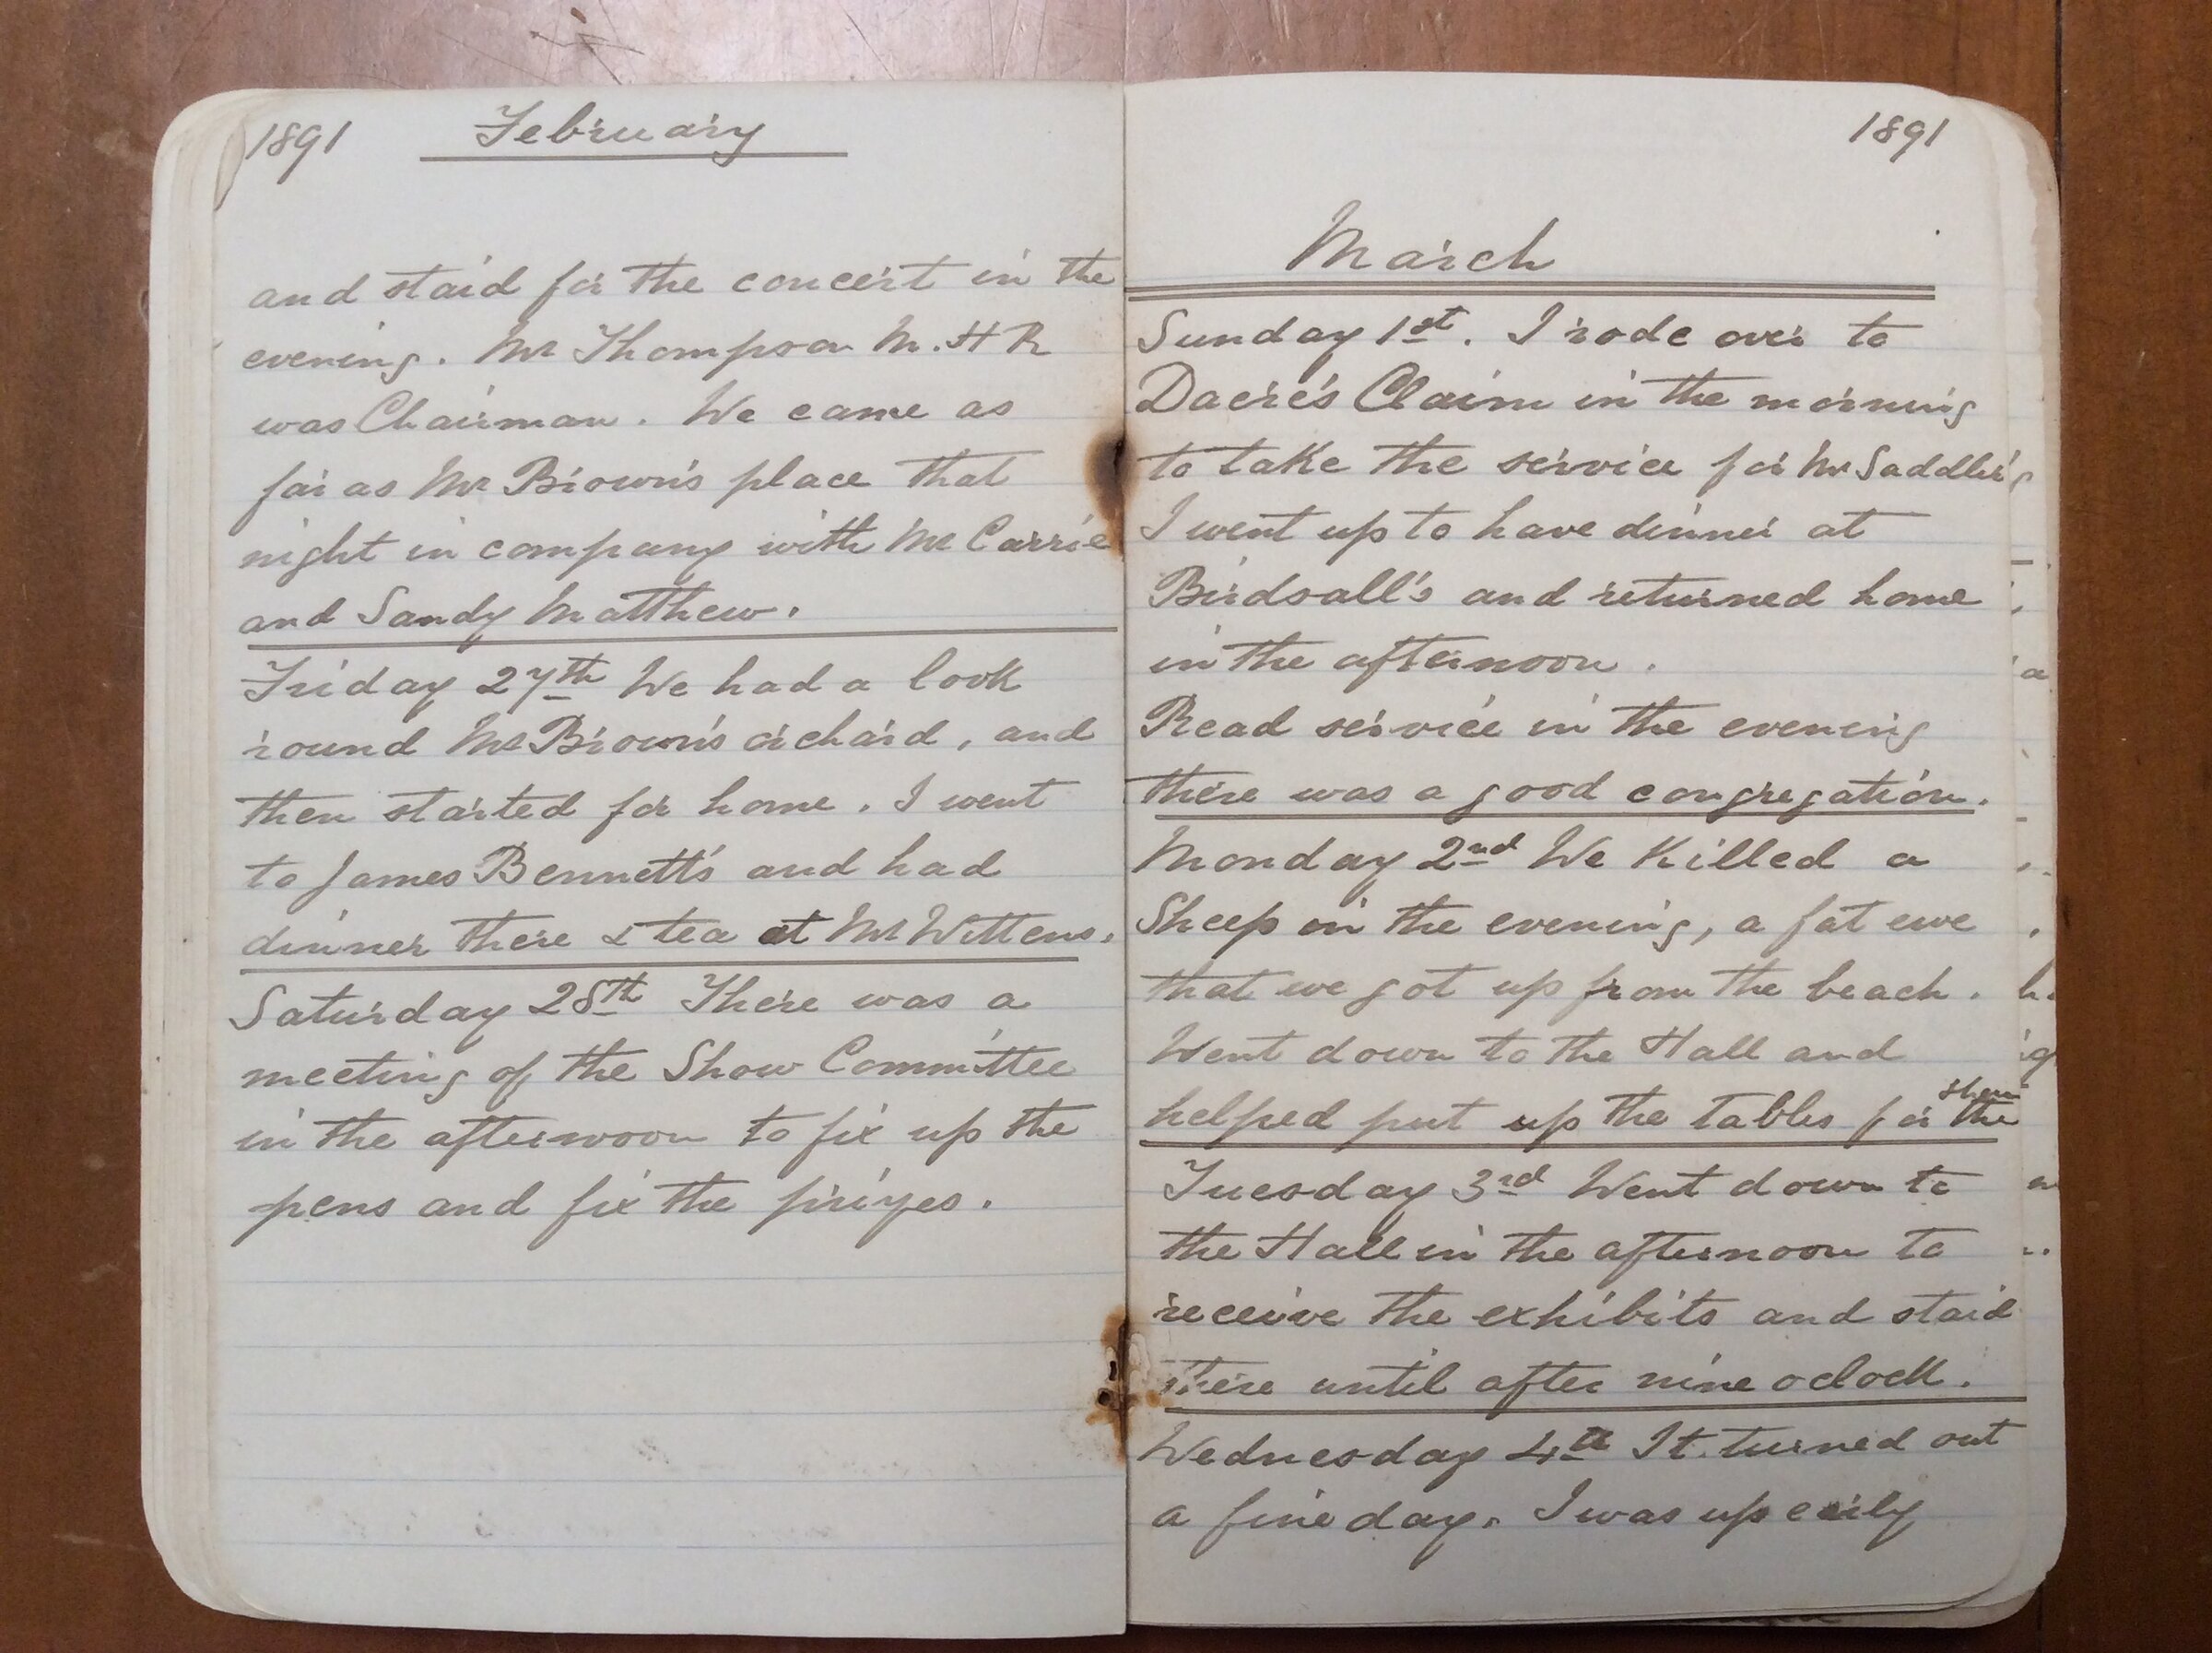 1891 February
and staid for the concert in the
evening. Mr Thompson M.H R
was Chairman. We came as
far as Mr Brown's place that
night in company with Mr Carrie
and Sandy Matthew.
Friday 27th We had a look
round Mr Brown's orchard, and
then started for home. I went
to James Bennett's and had
dinner there & tea at Mr Wittens.
Saturday 28th There was a
meeting of the Show Committee
in the afternoon to fix up the
pens and fix the prizes.
1891
March
Sunday 1st. I rode over to
Dacre's Claim in the morning
to take the service for Mr Saddler
I went up to have dinner at
Birdsall's and returned home
in the afternoon.
Read service in the evening
there was a good congregation.
Monday 2nd We Killed a
Sheep in the evening, a fat ewe
that we got up from the beach.
Went down to the Hall and
show
helped put up the tables for the
Tuesday 3rd Went down to
the Hall in the afternoon to
receive the exhibits and staid
there until after nine oclock.
Wednesday 4th It turned out
a fine day. I was up early